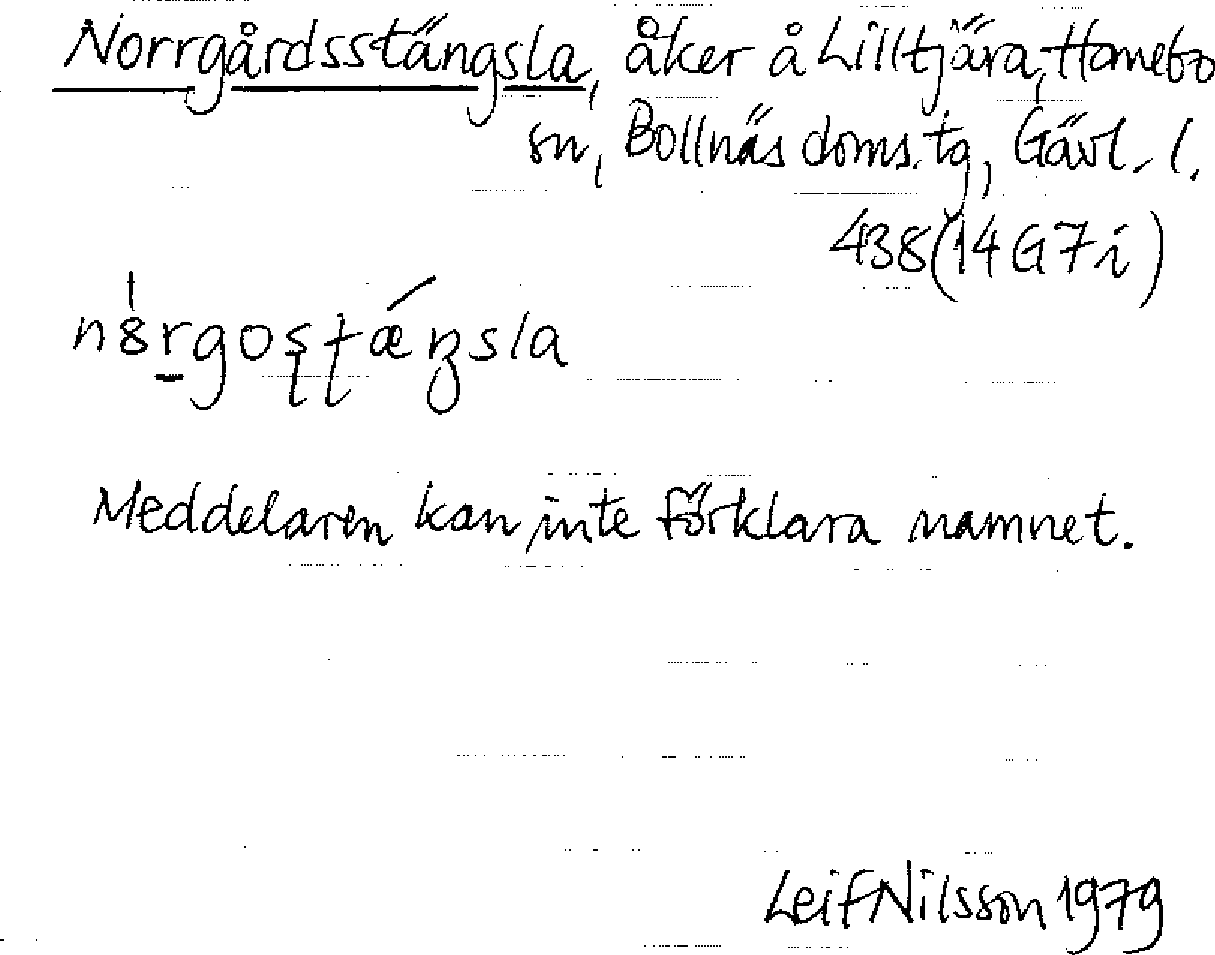 Norrgårdsstängsla, åker å Lilltjära, Hanebo
sn, Bollnäs doms.tg, Gävl. l.
438(14G7i)
Meddelaren kan inte förklara namnet.
Leif Nilsson 1979